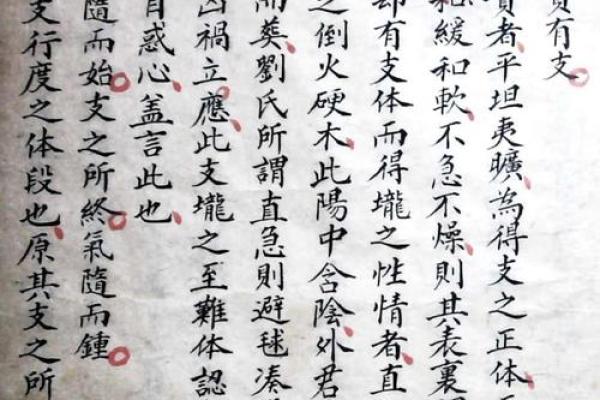 有支
者平坦夷曠為得支之正体
和緩和軟不急不燥則其表裏
却有支体而得壠之性情者直
之倒火硬木此陽中含陰外君
而葵劉氏所謂直急則避毬凑
凶禍立應此支壠之至難体認
自惑心盖言此也
隨而始支之所終氣隨而鍾
支行度之体段也原其支之所